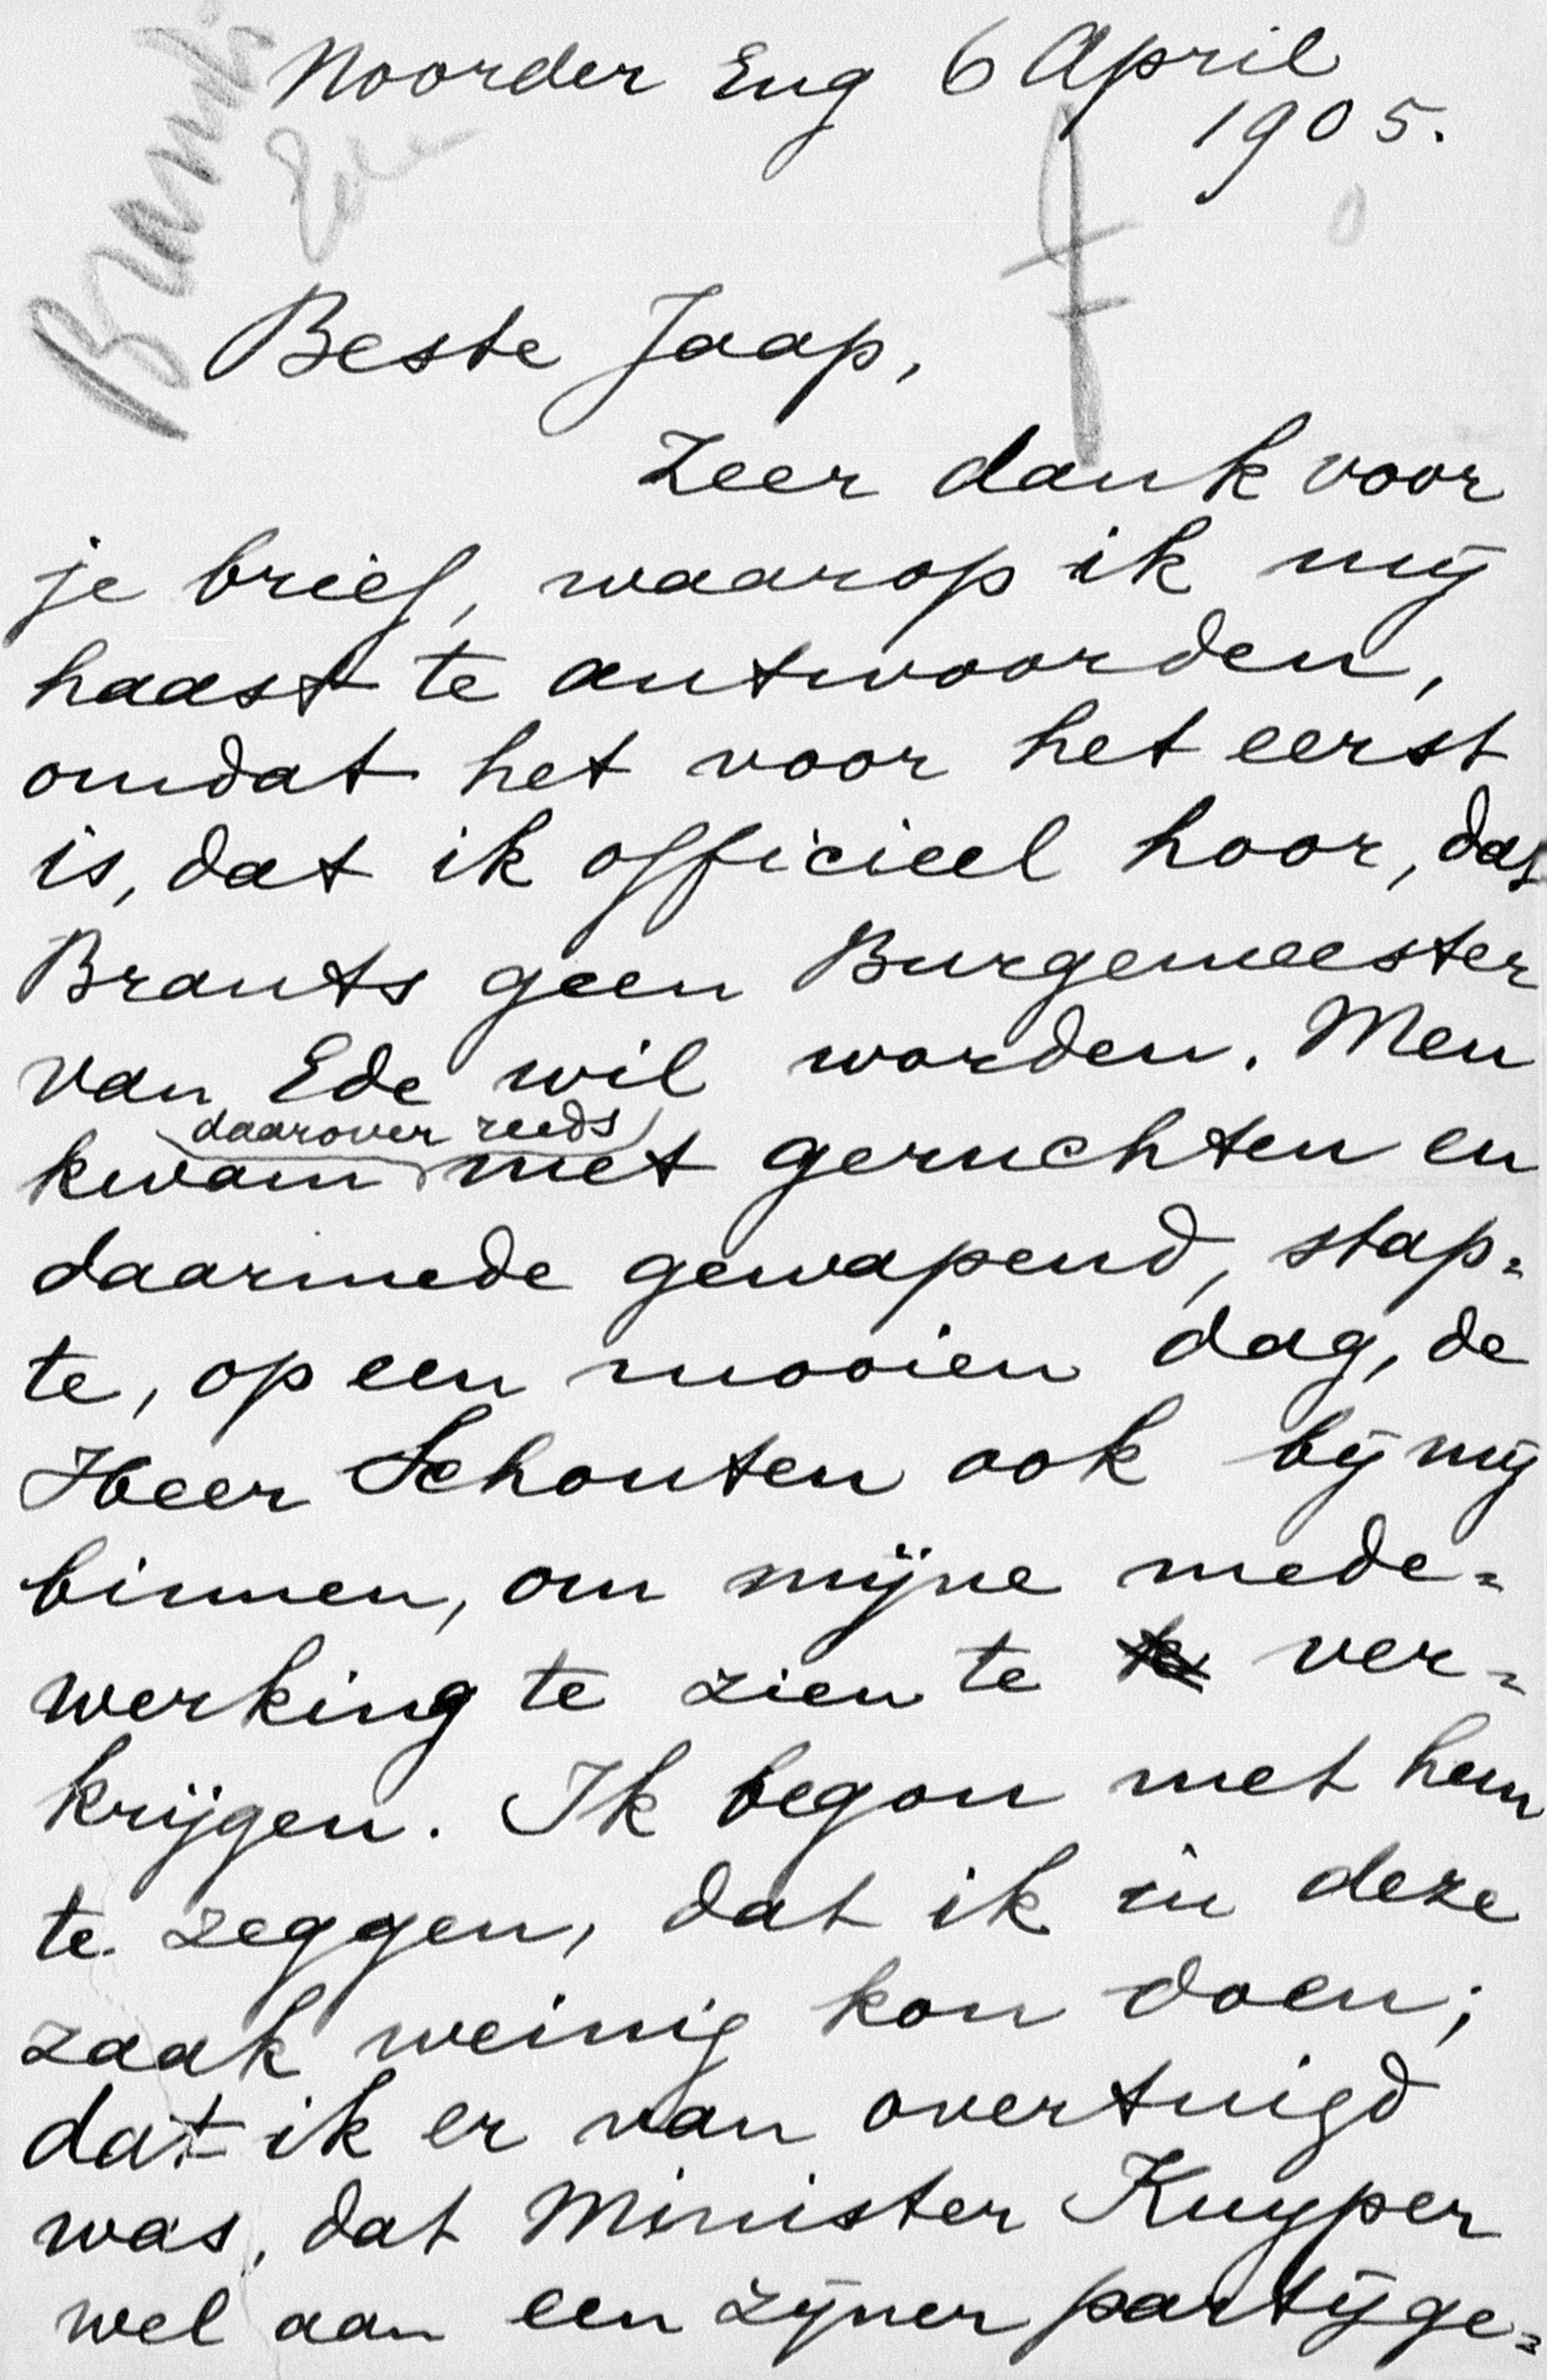 Noorder Eng 6 April
1905.
Brants
Ede
Beste Jaap,
Zeer dank voor
je brief, waarop ik mij
haast te antwoorden,
omdat het voor het eerst
is, dat ik officieel hoor, dat
Brants geen Burgemeester
van Ede wil worden. Men
daarover reeds
kwam met geruchten en
daarmede gewapend, stap=
te, op een mooien dag, de
Heer Schouten ook bij mij
binnen, om mijne mede=
werking te zien te ver=
krijgen. Ik begon met hem
te zeggen, dat ik in deze
zaak weinig kon doen;
dat ik er van overtuigd
was, dat Minister Kuyper
wel aan een zijner partijge=